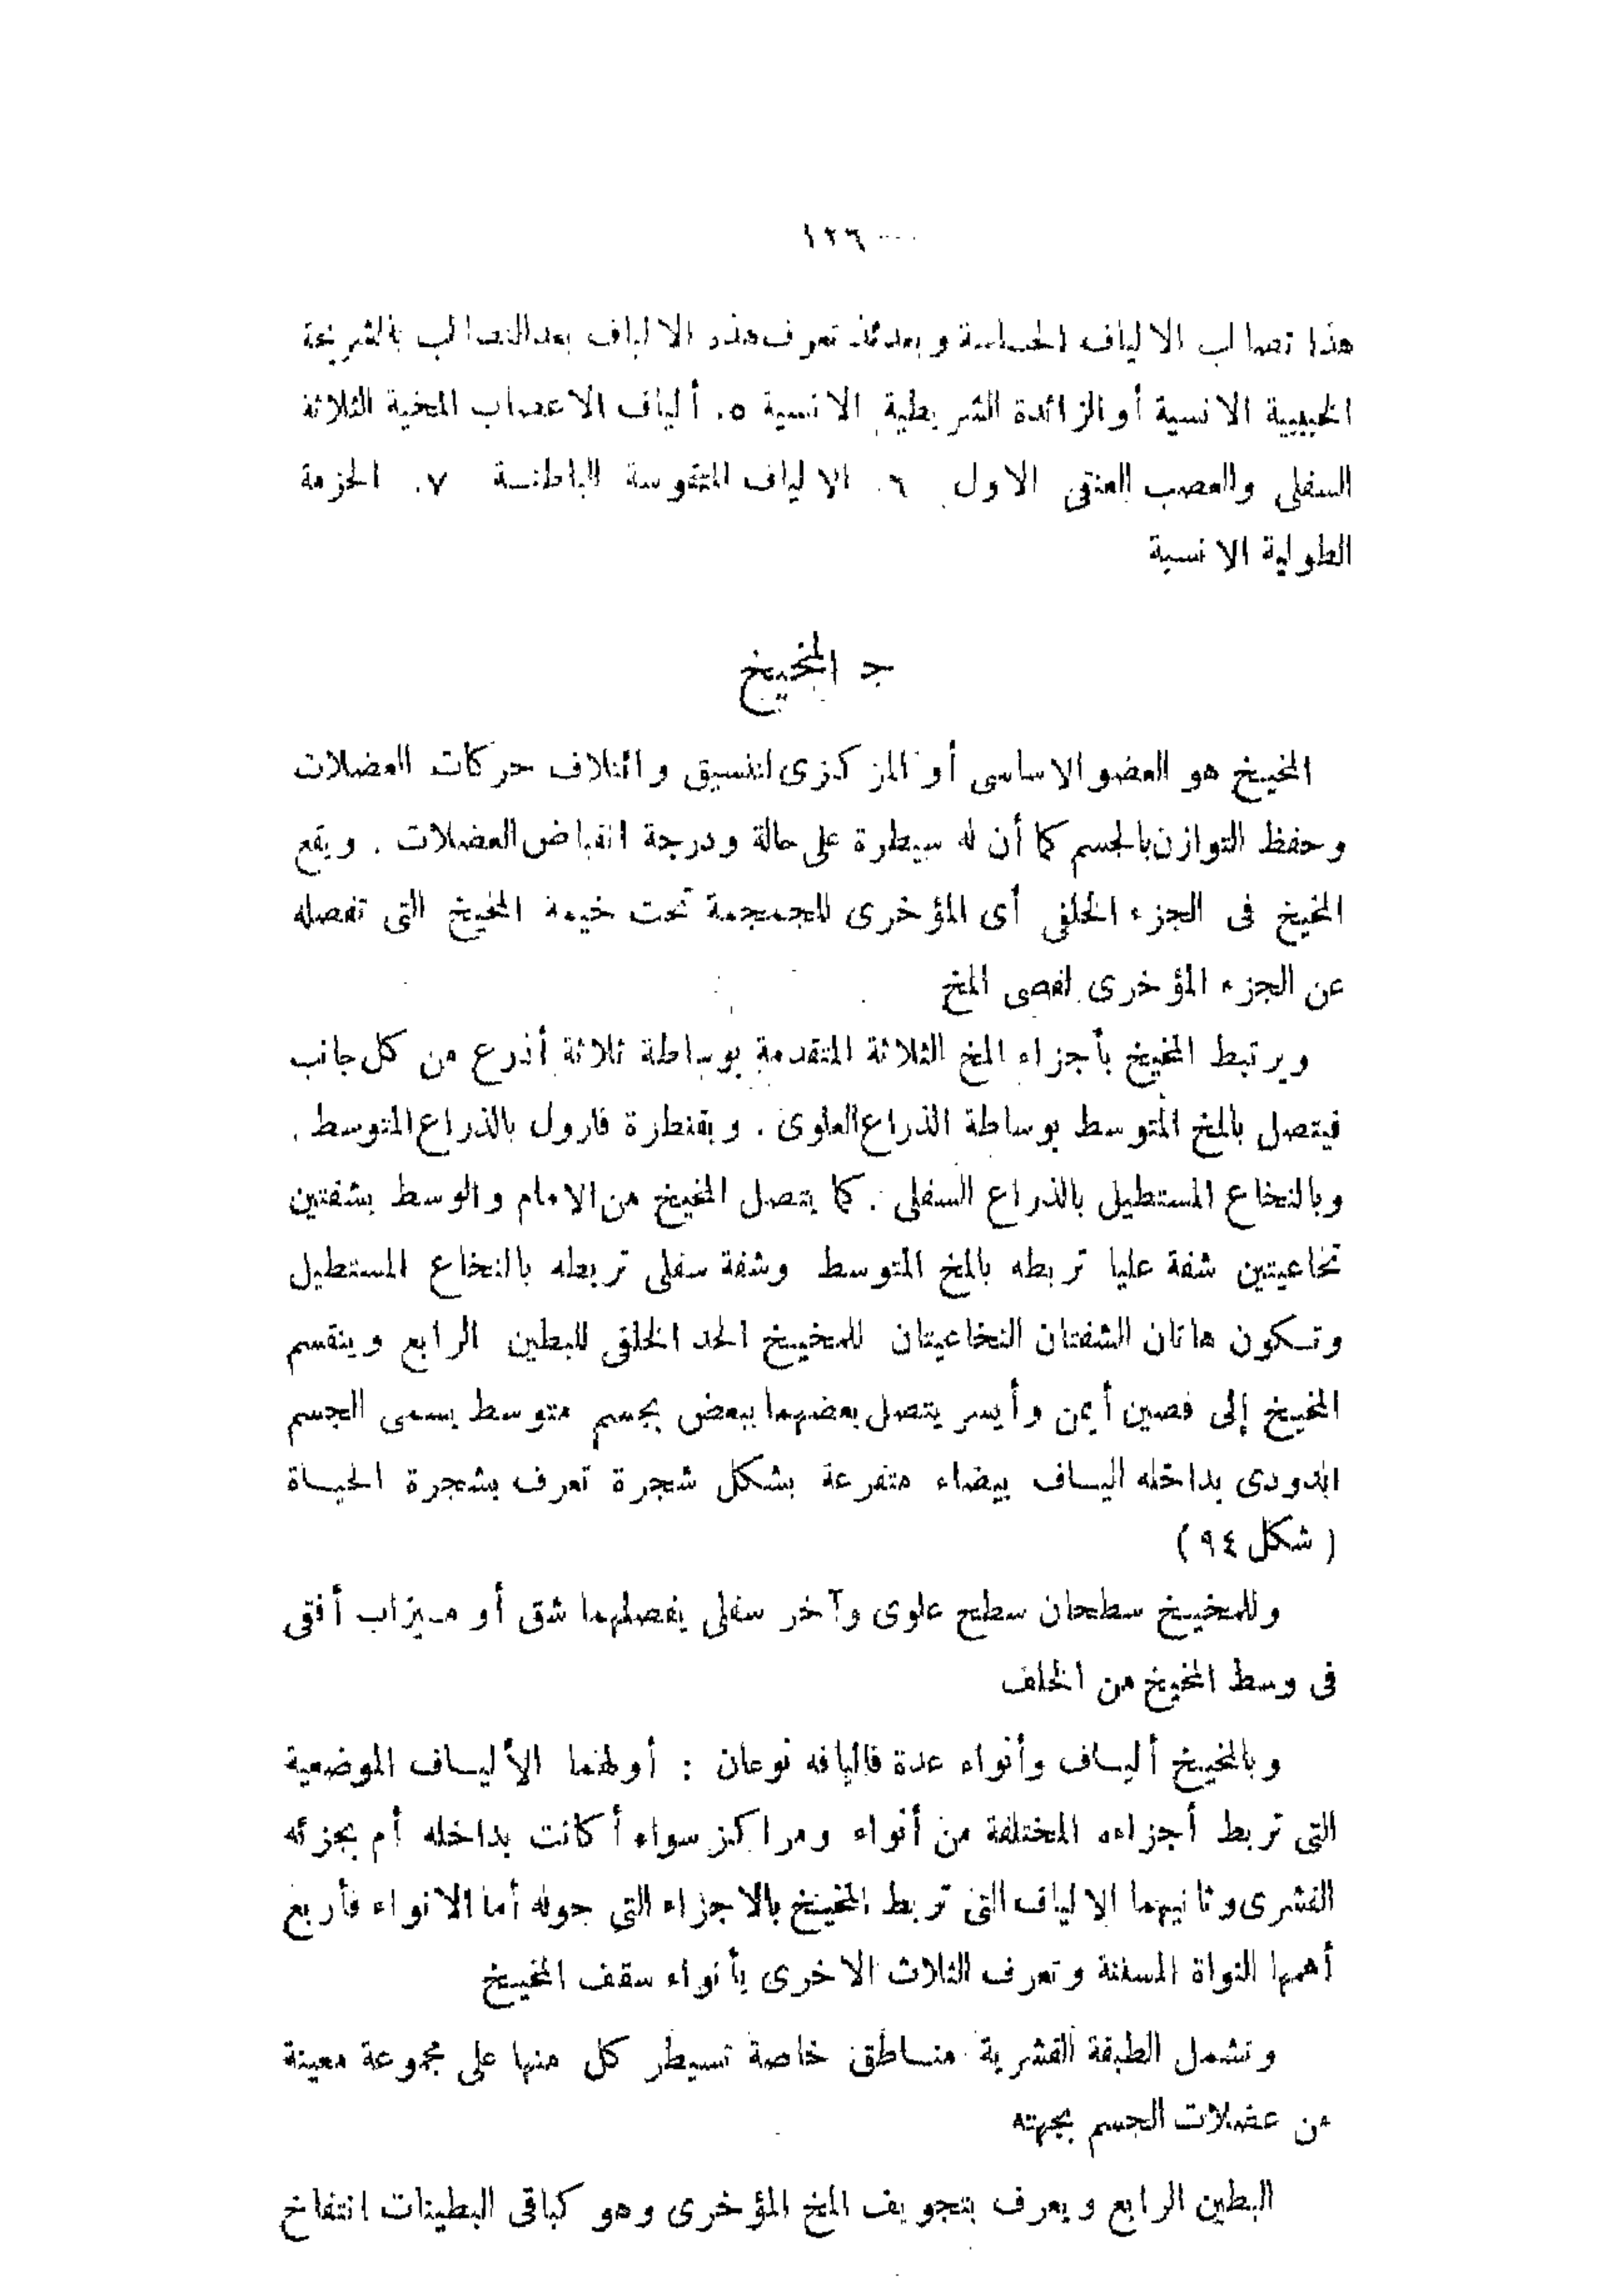 ١٢٦
هذا تصالب الالياف الحساسة وبعدئذ تعرف هذه الالياف بعد التصالب بالشريحة
الحبيبية الانسية أو الزائدة الشريطية الانسية ٥. ألياف الاعصاب المخية الثلاثة
السفلى والعصب العنقى الاول ٦. الالياف المتقوسة الباطنـة ٧. الحزمة
الطولية الانسية
جـ المخيخ
المخيخ هو العضو الاساسى أو المركزى لتنسيق وائتلاف حركات العضلات
وحفظ التوازن بالجسم كما أن له سيطرة على حالة ودرجة انقباض العضلات . ويقع
المخيخ فى الجزء الخلفى أى المؤخرى للجمجمة تحت خيمة المخيخ التى تفصله
عن الجزء المؤخرى لفصى المخ
ويرتبط المخيخ بأجزاء المخ الثلاثة المتقدمة بوساطة ثلاثة أذرع من كل جانب
فيتصل بالمخ المتوسط بوساطة الذراع العلوى . وبقنطرة فارول بالذراع المتوسط .
وبالنخاع المستطيل بالذراع السفلى . كما يتصل المخيخ من الامام والوسط بشفتين
نخاعيتين شفة عليا تربطه بالمخ المتوسط وشفة سفلى تربطه بالنخاع المستطيل
وتـكون هاتان الشفتان النخاعيتان للمخيخ الحد الخلفى للبطين الرابع وينقسم
المخيخ إلى فصين أيمن وأيسر يتصل بعضهما ببعض بجسم متوسط يسمى الجسم
الدودى بداخله اليـاف بيضاء متفرعة بشكل شجرة تعرف بشجرة الحيـاة
( شكل ٩٤ )
وللمخيـخ سطحان سطح علوى وآخر سفلى يفصلهما شق أو مـيزاب أفقى
فى وسط المخيخ من الخلف
وبالمخيـخ أليـاف وأنواء عدة فاليافه نوعان : أولهما الأليـاف الموضعية
التى تربط أجزاءه المختلفة من أنواء ومراكز سواء أكانت بداخله أم بجزئه
القشرى وثانيهما الالياف التى تربط المخيخ بالاجزاء التى حوله أما الانواء فأربع
أهمها النواة المسننة وتعرف الثلاث الاخرى بأنواء سقف المخيـخ
وتشمل الطبقة القشرية منـاطق خاصة تسيطر كل منها على مجموعة معينة
من عضلات الجسم بجهته
البطين الرابع ويعرف بتجويف المخ المؤخرى وهو كباقى البطينات انتفاخ